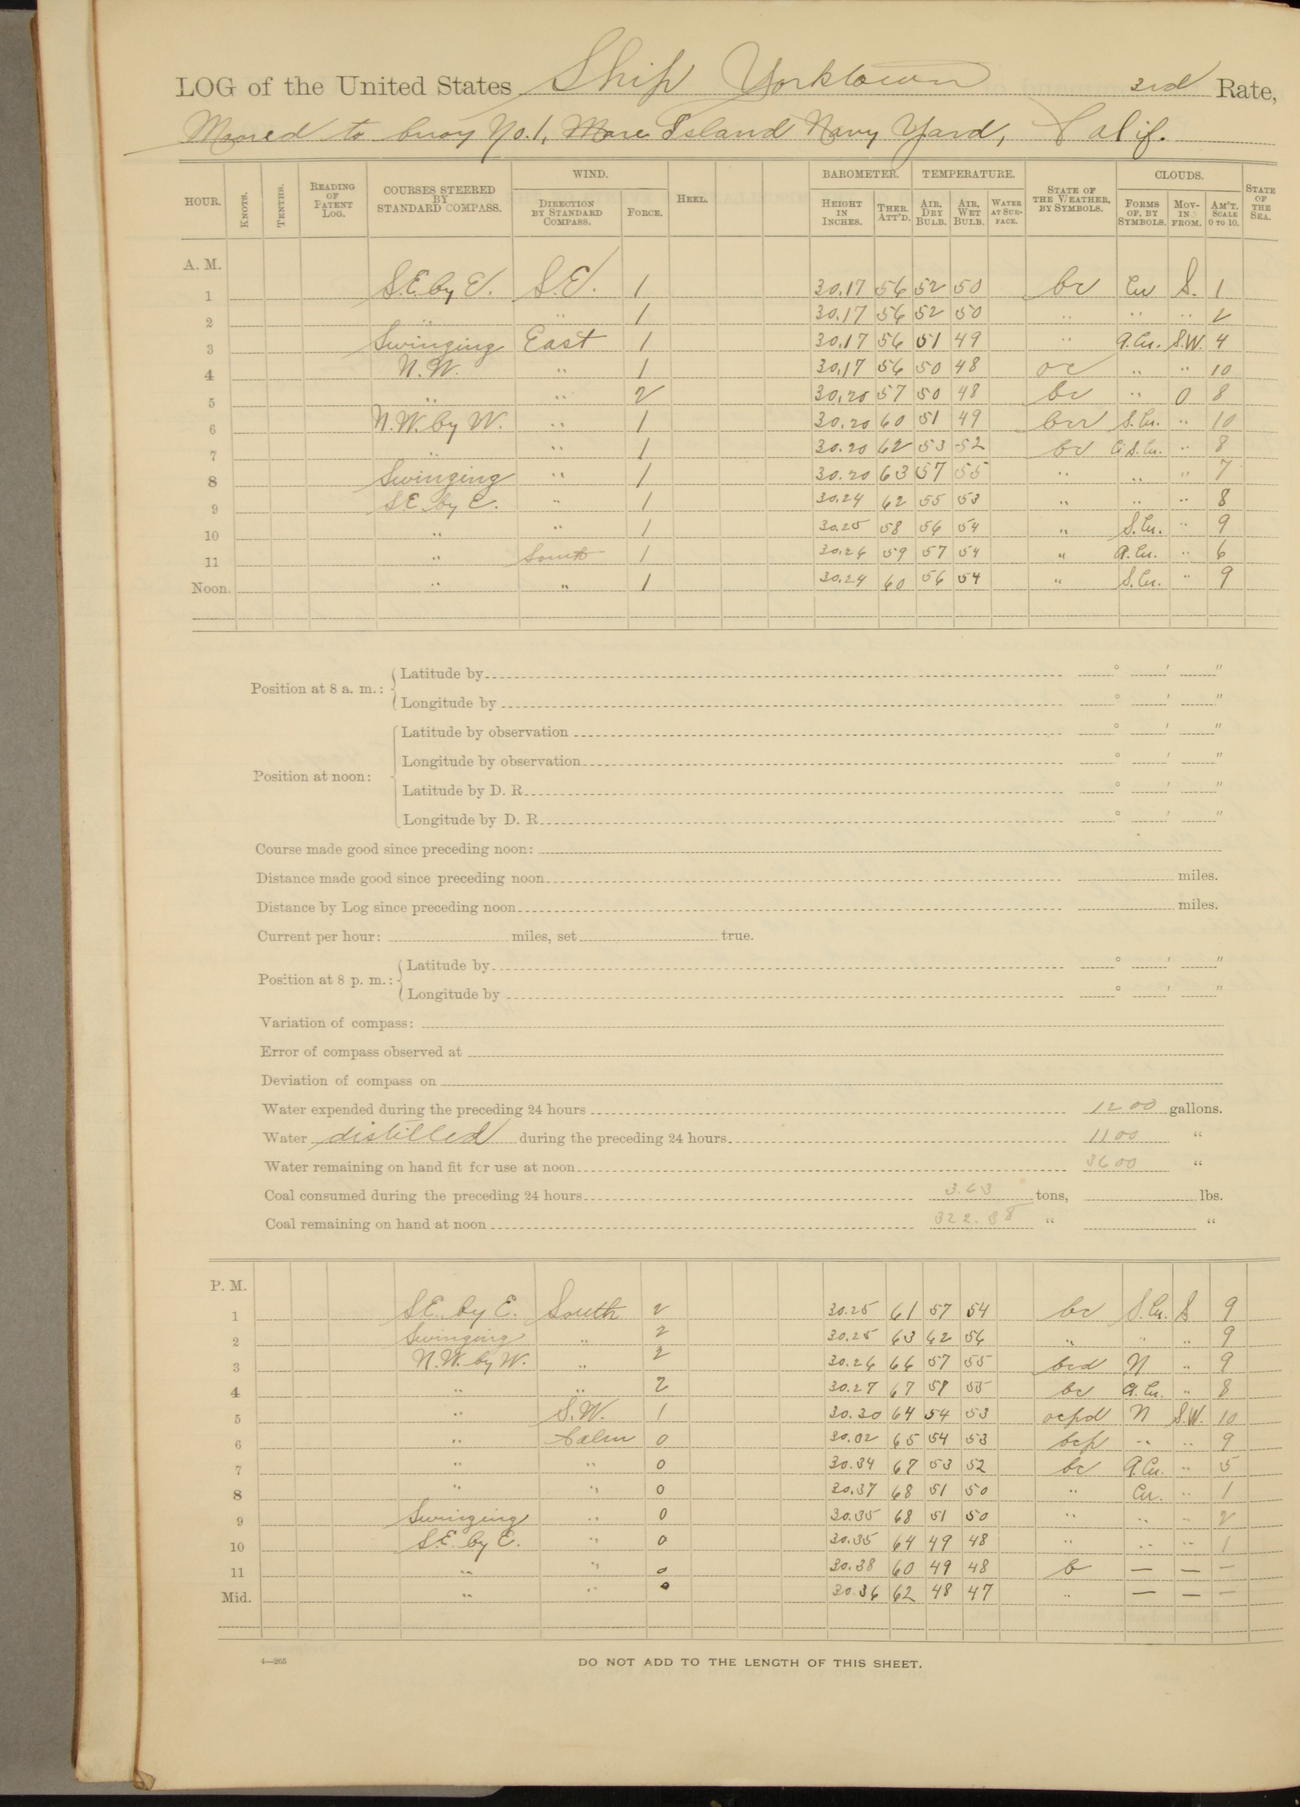 LOG of the United States Ship Yorktown 3rd Rate,
Moored to buoy No. 1, Mare Island Navy Yard, Calif.
HOUR. KNOTS. TENTHS. READING OF PATENT LOG. COURSES STEERED BY STANDARD COMPASS. WIND. DIRECTION BY STANDARD COMPASS. FORCE. HEEL. BAROMETER. HEIGHT IN INCHES. THER. ATT'D. TEMPERATURE. AIR, DRY BULB. AIR, WET BULB. WATER AT SURFACE. STATE OF THE WEATHER, BY SYMBOLS. CLOUDS. FORMS OF, BY SYMBOLS. MOVING FROM. AM'T. SCALE 0 TO 10. STATE OF THE SEA.
A. M.
1 S.E. by E. S.E. 1 30.17 56 52 50 bc Cu S. 1
2 " " 1 30.17 56 52 50 " " " 2
3 Swinging East 1 30.17 56 51 49 " A.Cu. S.W. 4
4 N.W. " 1 30.17 56 50 48 oc " " 10
5 " " 2 30.20 57 50 48 bc " 0 8
6 N.W. by W. " 1 30.20 60 51 49 S.Cu. " 10
7 " " 1 30.20 62 53 52 bc S.Cu. " 8
8 Swinging " 1 30.20 63 57 55 " " " 7
9 S.E. by E. " 1 30.24 62 55 53 " " " 8
10 " " 1 30.25 58 56 54 " S.Cu. " 9
11 " South 1 30.26 59 57 54 " A.Cu. " 6
Noon. " " 1 30.24 60 56 54 " S.Cu. " 9
Position at 8 a. m.: Latitude by ° ' "
Longitude by ° ' "
Position at noon: Latitude by observation ° ' "
Longitude by observation ° ' "
Latitude by D. R. ° ' "
Longitude by D. R. ° ' "
Course made good since preceding noon:
Distance made good since preceding noon miles.
Distance by Log since preceding noon miles.
Current per hour: miles, set true.
Position at 8 p. m.: Latitude by ° ' "
Longitude by ° ' "
Variation of compass:
Error of compass observed at
Deviation of compass on
Water expended during the preceding 24 hours 1200 gallons.
Water distilled during the preceding 24 hours 1100 "
Water remaining on hand fit for use at noon 3600 "
Coal consumed during the preceding 24 hours 3.63 tons, lbs.
Coal remaining on hand at noon 322.88 " "
P. M.
1 S.E. by E. South 2 30.25 61 57 54 bc S.Cu. S 9
2 Swinging " 2 30.25 63 62 56 " " " 9
3 N.W. by W. " 2 30.26 66 57 55 bcd N " 9
4 " " 2 30.27 67 57 55 bc A.Cu. " 8
5 " S.W. 1 30.30 64 54 53 ocpd N S.W. 10
6 " Calm 0 30.02 65 54 53 bcp " " 9
7 " " 0 30.34 67 53 52 bc A.Cu. " 5
8 " " 0 30.37 68 51 50 " Cu. " 1
9 Swinging " 0 30.35 68 51 50 " " " 2
10 S.E. by E. " 0 30.35 64 49 48 " " " 1
11 " " 0 30.38 60 49 48 b — — —
Mid. " " 0 30.36 62 48 47 " — — —
4—265
DO NOT ADD TO THE LENGTH OF THIS SHEET.